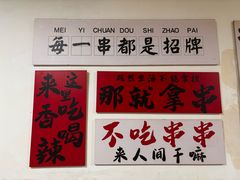 MEI YI CHUAN DOU SHI ZHAO PAI
每一串都是招牌
来这里
吃香喝辣
那就拿串
不吃串串
来人间干嘛